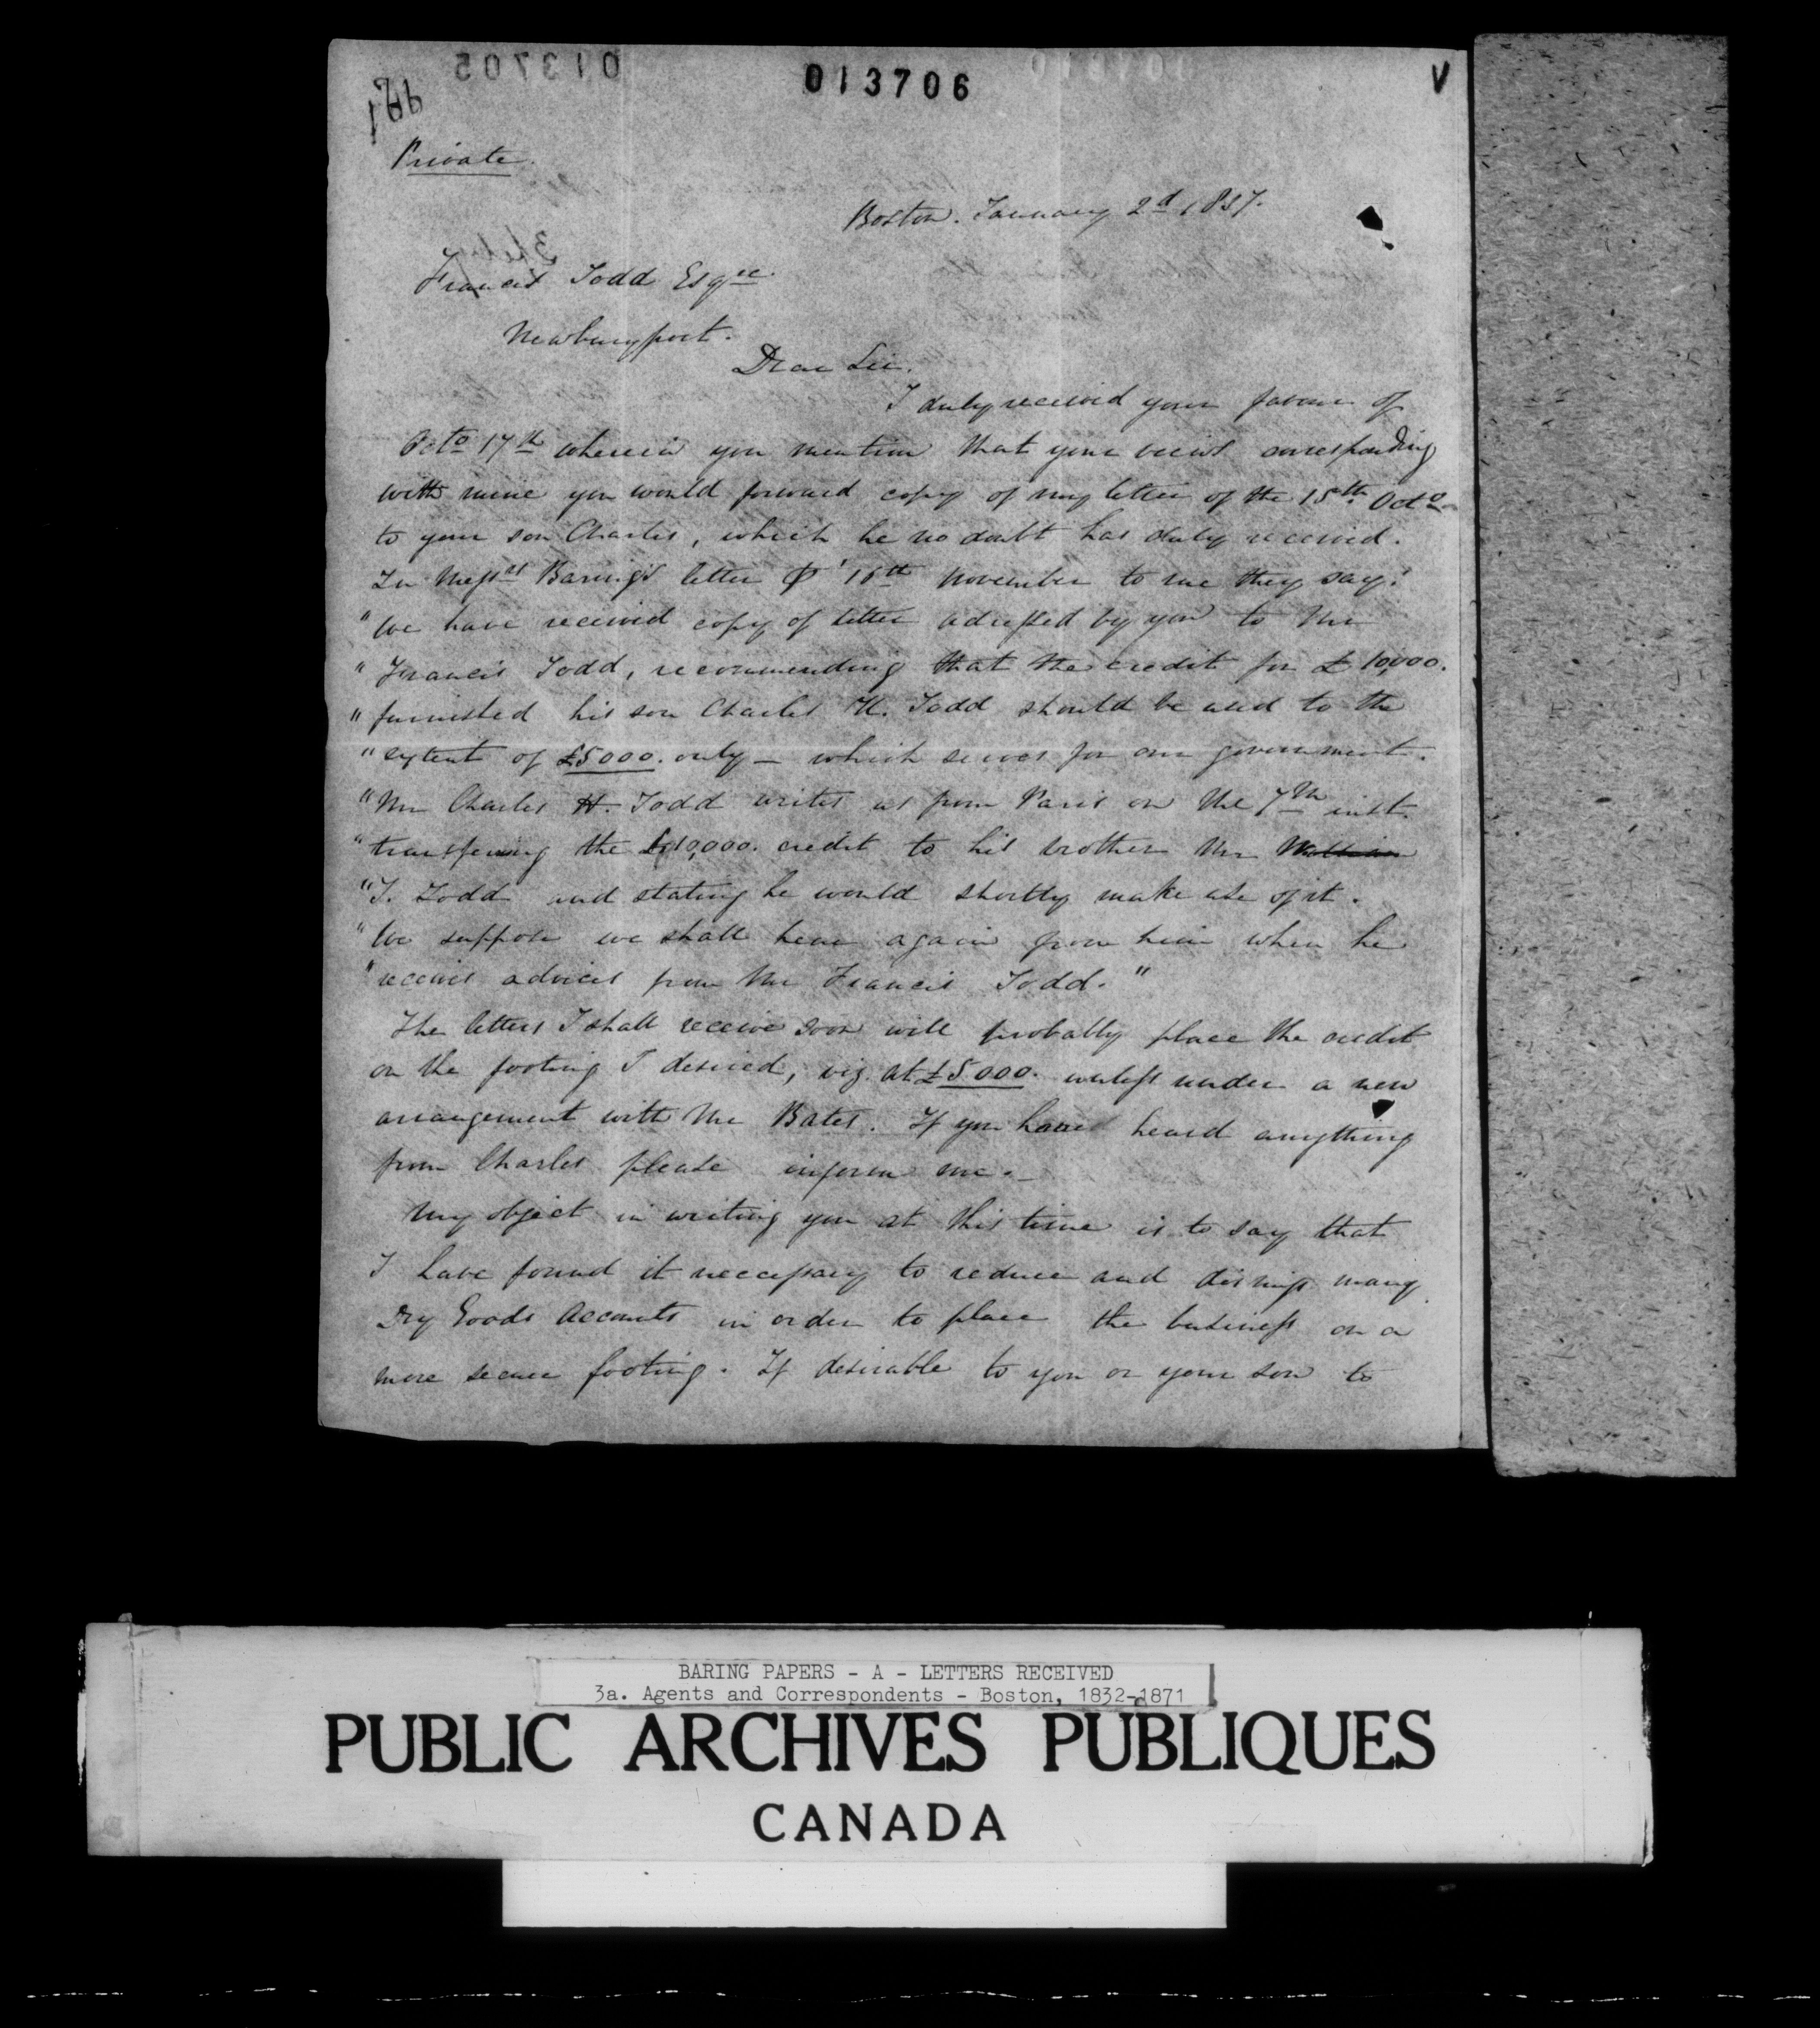 013706
V
Private.
Boston. January 2d 1837.
Francis Todd Esqre
Newburyport.
Dear Sir.
I duly received your favour of
Octo 17th wherein you mention that your views corresponding
with mine you would forward copy of my letter of the 15th Octo
to your son Charles, which he no doubt has duly received.
In Messrs Baring's letter 16th November to me they say:
"We have received copy of letter adressed by you to Mr
"Francis Todd, recommending that the credit for £10,000.
"furnished his son Charles H. Todd should be used to the
"extent of £5000. only - which serves for our government.
"Mr Charles H. Todd writes us from Paris on the 7th inst.
"transfering the £10,000. credit to his brother Mr William
"T. Todd and stating he would shortly make use of it.
"We suppose we shall hear again from him when he
"receives advices from Mr Francis Todd."
The letters I shall receive soon will probably place the credit
on the footing I desired, viz. at £5000. unless under a new
arrangement with Mr Bates. If you have heard anything
from Charles please inform me._
My object in writing you at this time is to say that
I have found it neccessary to reduce and dismiss many
Dry Goods Accounts in order to place the business on a
more secure footing. If desirable to you or your son to
BARING PAPERS - A - LETTERS RECEIVED
3a. Agents and Correspondents - Boston, 1832-1871
PUBLIC ARCHIVES PUBLIQUES
CANADA